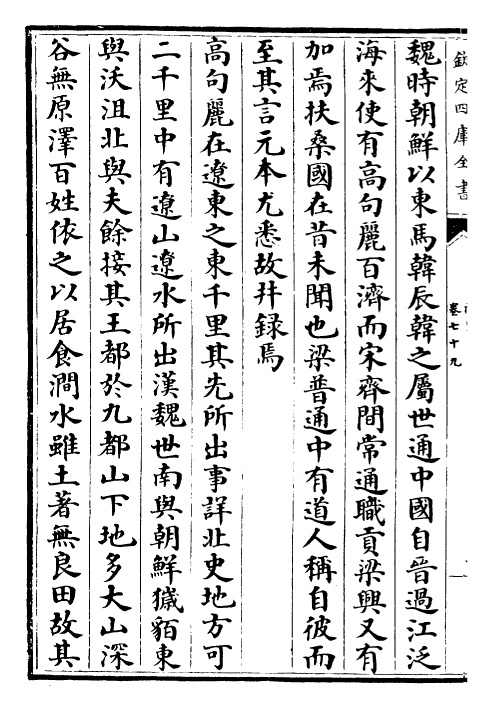 欽定四庫全書
卷七十九
魏時朝鮮以東馬韓辰韓之屬世通中國自晉過江泛
海來使有高句麗百濟而宋齊間常通職貢梁興又有
加焉扶桑國在昔未聞也梁普通中有道人稱自彼而
至其言元本尤悉故幷録焉
高句麗在遼東之東千里其先所出事詳北史地方可
二千里中有遼山遼水所出漢魏世南與朝鮮獩貊東
與沃沮北與夫餘接其王都於九都山下地多大山深
谷無原澤百姓依之以居食澗水雖土著無良田故其